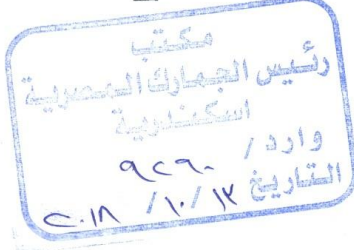 مكتب
رئيس الجمارك المصرية
اسكندرية
وارد / ٩٢٩٠
التاريخ ١٣ / ١٠ / ٢٠١٨